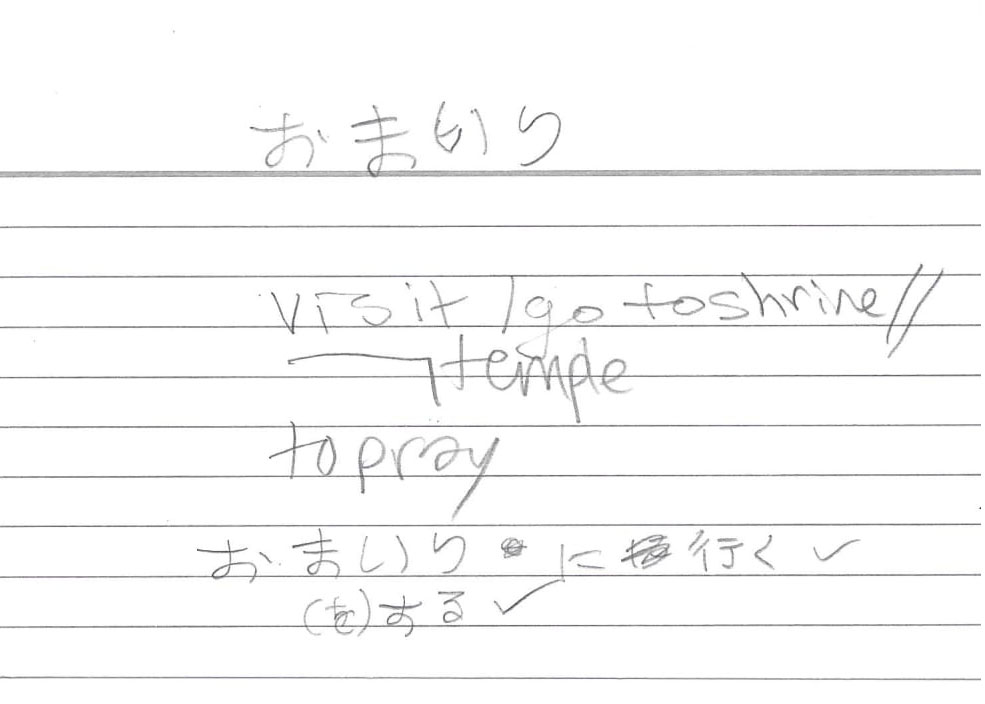 おまいり
visit / go to shrine //
temple
to pray
おまいり に 行く ✓
(を)する ✓